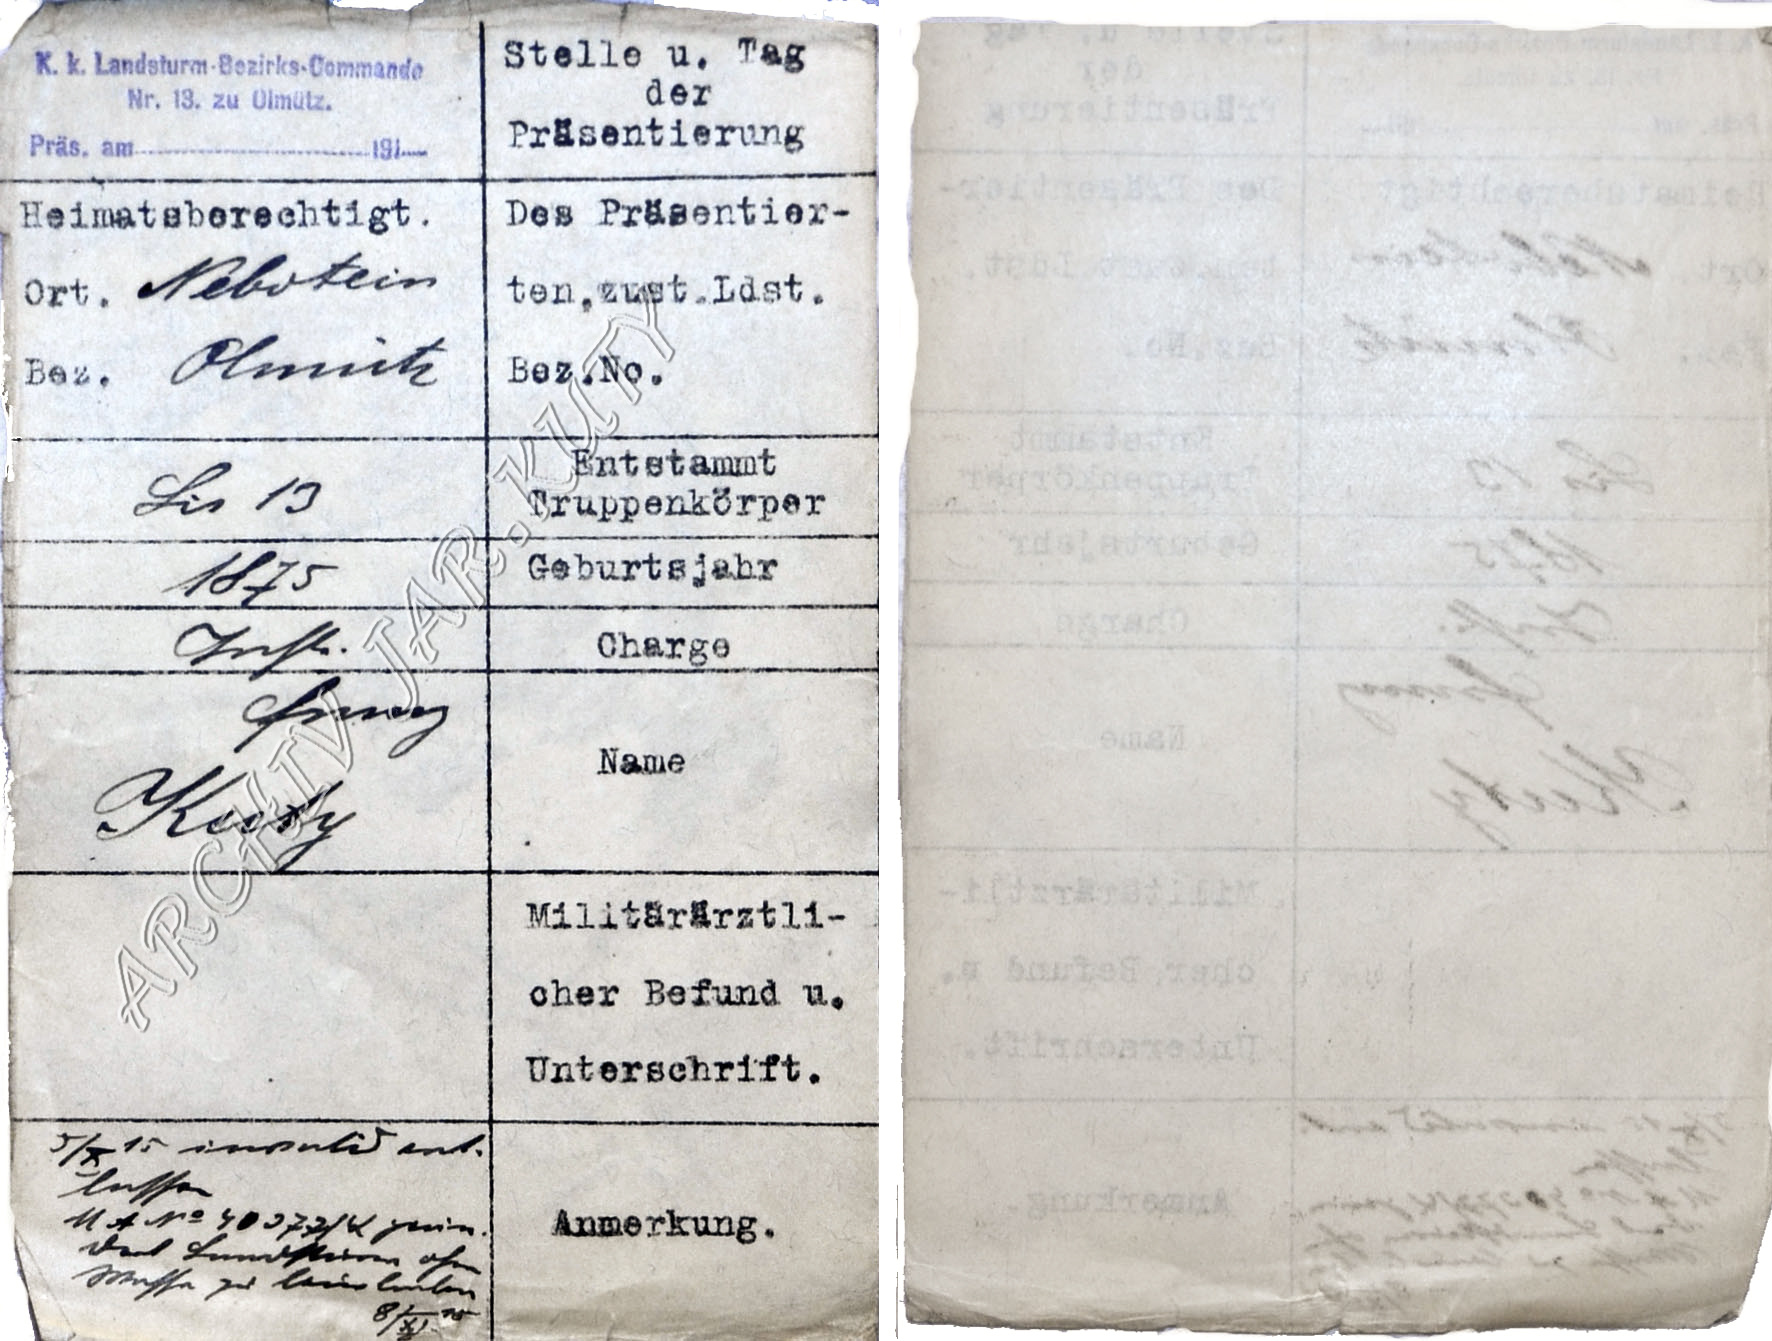 K. k. Landsturm-Bezirks-Commando
Nr. 13. zu Olmütz.
Präs. am 191
Stelle u. Tag
der
Präsentierung
Heimatsberechtigt.
Ort. Nebotein
Bez. Olmütz
Des Präsentier-
ten, zust. Ldst.
Bez. No.
Lir 13
Entstammt
Truppenkörper
1875
Geburtsjahr
Inft.
Charge
Franz
Kuty
Name
Militärärztli-
cher Befund u.
Unterschrift.
5/X 15 invalid ent-
lassen
M A No
Landsturm ohne
Waffe zu
8/XI 15
Anmerkung.
ARCHIV JAR. KUTY